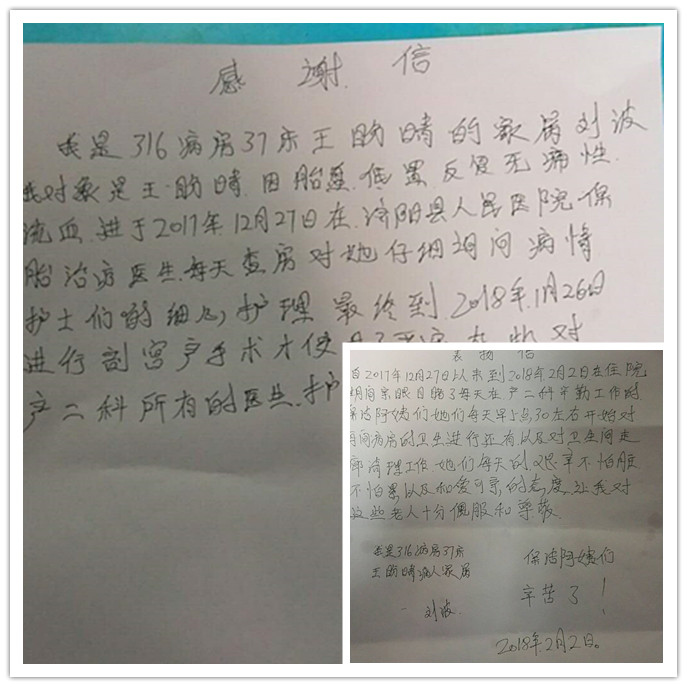 感谢信
我是316病房37床王盼晴的家属刘波
我对象是王盼晴.因胎盘.低置反复无痛性.
流血.进于2017年12月27日在.济阳县人民医院保
胎治疗医生.每天查房对她仔细询问病情
护士们的细心护理最终到2018年1月26日
进行剖宫产手术才使
对
产二科所有的医生.护
表扬信
自2017年12月27日以来到2018年2月2日在住院
期间亲眼目睹了每天在产二科辛勤工作的
保洁阿姨们她们每天早5点30左右开始对
房间病房的卫生进行还有以及对卫生间走
廊清理工作她们每天的艰辛不怕脏
不怕累以及和爱可亲的态度.让我对
这些老人十分佩服和尊敬.
我是316病房37床
王盼晴病人家属
刘波.
保洁阿姨们
辛苦了!
2018年2月2日。